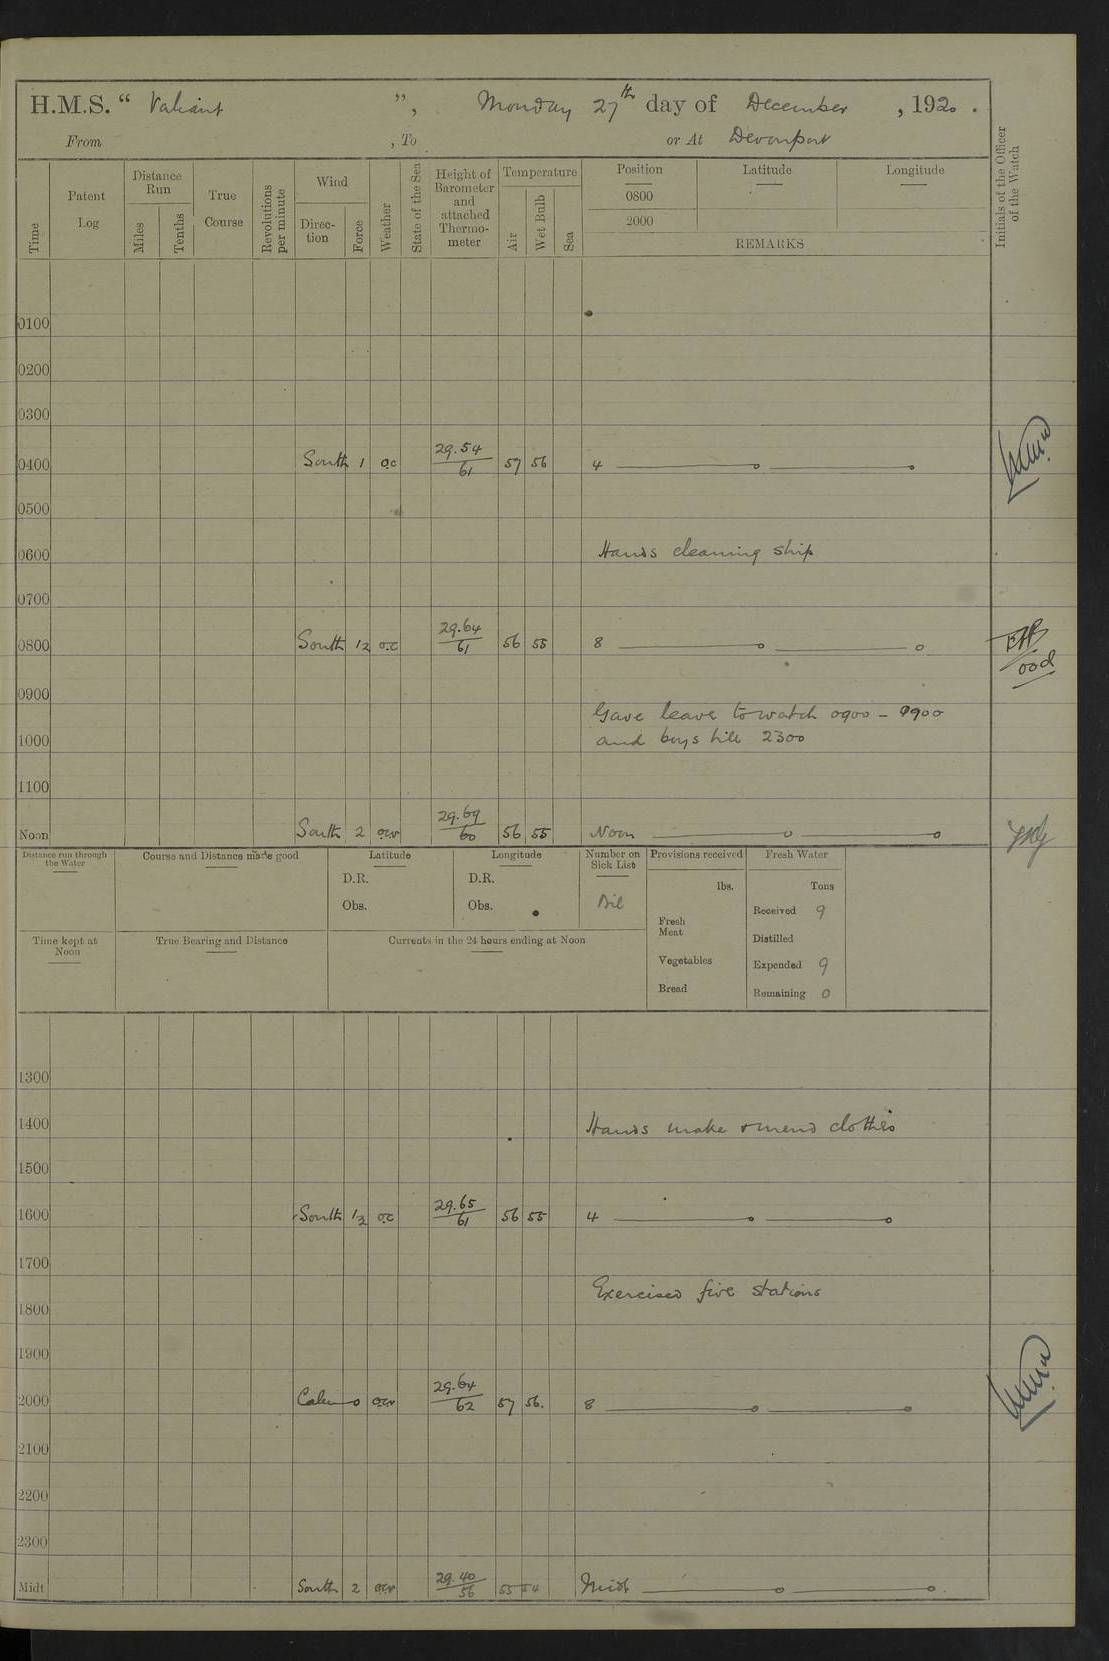 H.M.S. “ Valiant ”, Monday 27th day of December , 1920 .
From , To or At Devonport
Time
Patent Log
Distance Run
Miles
Tenths
True Course
Revolutions per minute
Wind
Direc-tion
Force
Weather
State of the Sea
Height of Barometer and attached Thermo-meter
Temperature
Air
Wet Bulb
Sea
Position
0800
2000
Latitude
Longitude
REMARKS
Initials of the Officer of the Watch
0100
0200
0300
0400 South 1 oc 29.54 61 57 56 4
0500
0600 Hands cleaning ship
0700
0800 South 1/2 oc 29.64 61 56 55 8
ood
0900
Gave leave to watch 0900 - 0900
1000 and boys till 2300
1100
Noon South 2 29.69 60 56 55 Noon
Distance run through the Water
Course and Distance made good
Latitude
D.R.
Obs.
Longitude
D.R.
Obs.
Number on Sick List
Nil
Provisions received
lbs.
Fresh Meat
Vegetables
Bread
Fresh Water
Tons
Received 9
Distilled
Expended 9
Remaining 0
Time kept at Noon
True Bearing and Distance
Currents in the 24 hours ending at Noon
1300
1400 Hands make & mend clothes
1500
1600 South 1/2 oc 29.65 61 56 55 4
1700
Exercised fire stations
1800
1900
2000 Calm 0 29.64 62 57 56. 8
2100
2200
2300
Midt South 2 29.40 56 55 54 Midt